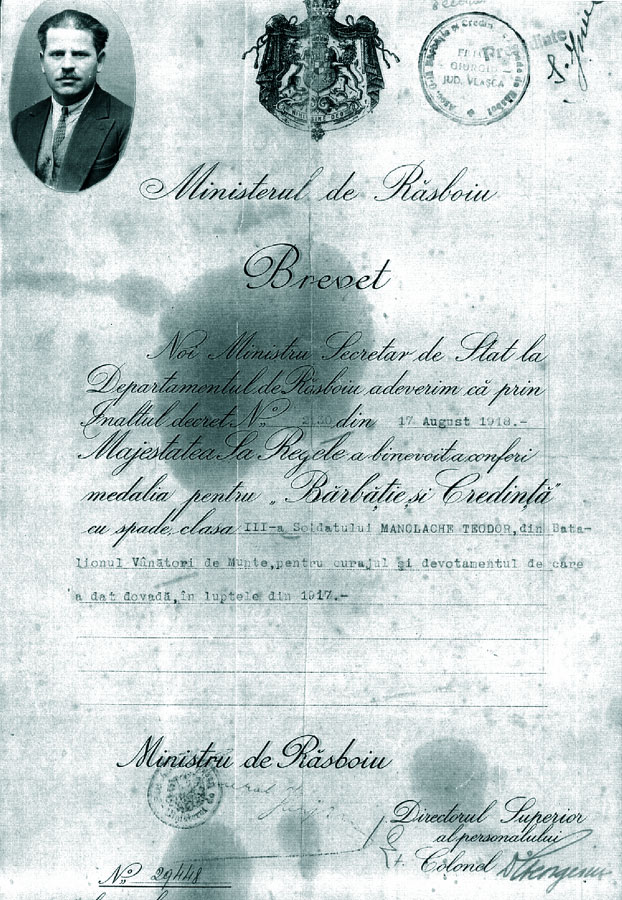 FIL
GIURGIU
JUD. VLAȘCA
Ministerul de Răsboiu
Brevet
Noi Ministru Secretar de Stat la
Departamentul de Răsboiu adeverim că prin
Inaltul decret No. din 17 August 1918.-
Majestatea Sa Regele a binevoit a conferi
medalia pentru „Bărbăție și Credință”
cu spade, clasa III-a Soldatului MANOLACHE TEODOR, din Bata-
lionul Vânători de Munte, pentru curajul și devotamentul de care
a dat dovadă, în luptele din 1917.-
Ministru de Răsboiu
Directorul Superior
al personalului
Colonel
No. 29448